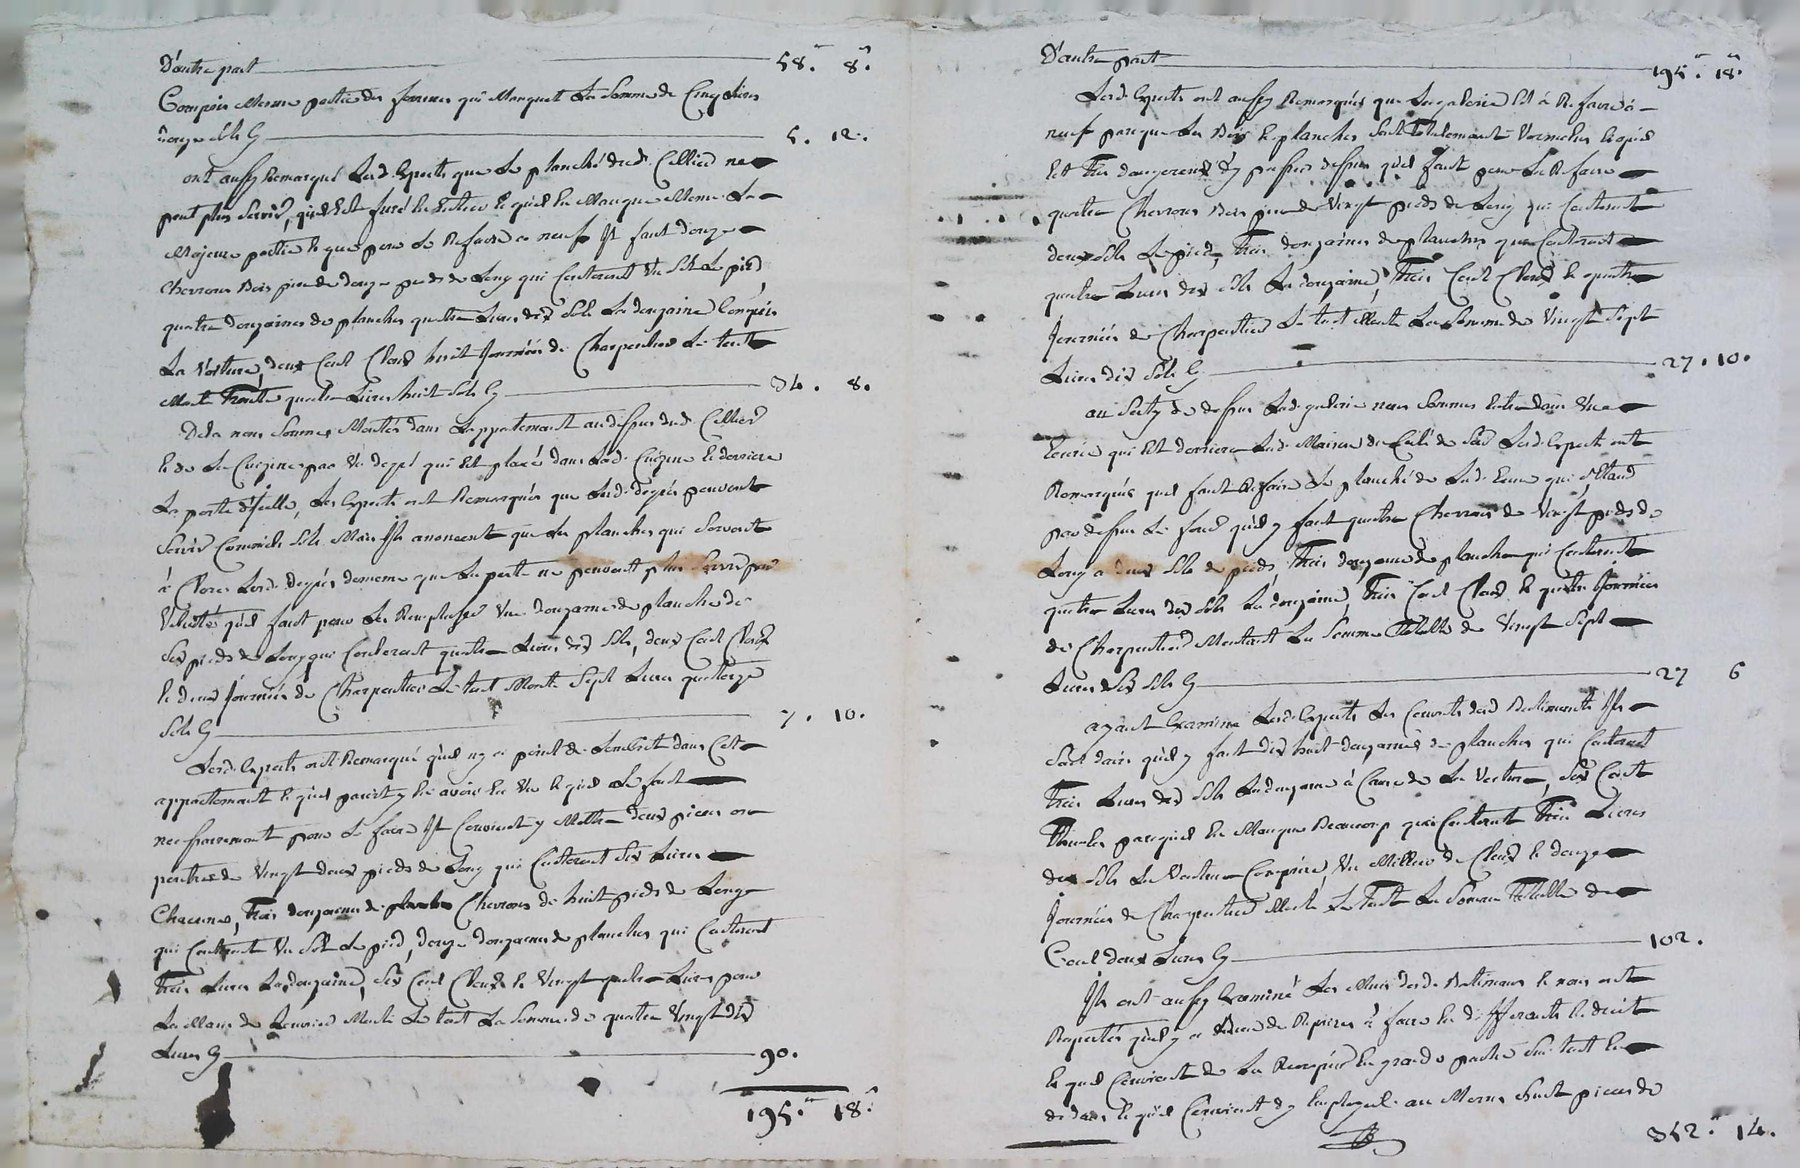 D'autre part 58.ʰ 8.ˢ
Compris Mesme partie des ferrures qui Manquet La Somme de Cinq Livres
douze sols Cy 5. 12.
ont aussy Remarqué Lesd. Experts que Le planché dud. Cellier ne
peut plus Servir, qu'il Est Et qu'il En Manque Mesme La
Majeure partie Et que pour Le Refaire a neuf Il faut douze
Chevrons Bois pin de douze pieds de Long qui Couteront Un Sol Le pied,
quatre douzaines de planches quatre Livres dix Sols La douzaine Compris
La Voiture, deux Cent Clous huit Journées de Charpentier Le tout
Monte Trente quatre Livres huit Sols Cy 34. 8.
Dela nous Sommes Montés dans L'appartement au dessus dud. Cellier
Et de La Cuizine par Un degré qui Est placé dans Lad. Cuizine Et derriere
La porte d'Icelle, Les Experts ont Remarqués que Lesd. degrés peuvent
Servir Mais Ils anoncent que Les planches qui Servent
à Clore Lesd. degrés de meme que La porte ne peuvent plus Servir par
Vetusté qu'il faut pour Les Remplacer Une douzaine de planches de
Six pieds de Long qui Couteront quatre Livres dix Sols, deux Cent Clous
Et deux Journées de Charpentier Le tout Monte Sept Livres
Sols Cy 7. 10.
Lesd. Experts ont Remarqué qu'il n'y a point de dans Cet
appartement Et qu'il paroit y En avoir Eu Un Et qu'il Le faut
necessairement pour Le faire Il Convient y Mettre deux pieces ou
poutres de Vingt deux pieds de Long qui Couteront Six Livres
Chacune, Trois douzaines de Chevrons de huit pieds de Longs
qui Couteront Un Sol Le pied, douze douzaines de planches qui Couteront
Trois Livres La douzaine, Six Cent Clous Et Vingt quatre Livres pour
La Main de L'ouvrier Monte Le tout La Somme de quatre Vingt dix
Livres Cy 90.
195.ʰ 18.ˢ
D'autre part 195.ʰ 18.ˢ
Lesd. Experts ont aussy Remarqués que La galerie Est à Refaire à
neuf parce que Les Bois Et planches Sont totalement Et
Est Tres dangereux d'y passer dessus qu'il faut pour La Refaire
quatre Chevrons Bois pin de Vingt pieds de Long qui Couteront
deux Sols Le pied, Trois douzaines de planches qui Couteront
quatre Livres dix Sols La douzaine, Trois Cent Clous Et quatre
Journées de Charpentier Le tout Monte La Somme de Vingt Sept
Livres dix Sols Cy 27. 10.
au Sorty de dessus Lad. galerie nous Sommes Entré dans Une
Ecurie qui Est derriere Lad. Maison du Coté de Lesd. Experts ont
Remarqués qu'il faut Refaire Le planché de Lad. Ecurie qui Etand
par dessus Le qu'il y faut quatre Chevrons de Vingt pieds de
Long a deux Sols Le pied, Trois douzaines de planches qui Couteront
quatre Livres dix Sols La douzaine, Trois Cent Clous Et quatre Journées
de Charpentier Montent La Somme Totalle de Vingt Sept
Livres Six Sols Cy 27 6
ayant Examiné Lesd. Experts Les Couverts desd. Batiments Ils
Sont qu'il y faut dix huit douzaines de planches qui Couteront
Trois Livres dix Sols La douzaine à Cause de La Voiture, Six Cent
Thuiles parcequ'il En Manque Beaucoup qui Couteront Trois Livres
dix Sols La Voiture Comprise, Un Millier de Clous Et douze
Journées de Charpentier Monte Le Tout La Somme Totalle de
Cent deux Livres Cy 102.
Ils ont aussy Examiné Les Murs desd. Batiments Et nous ont
Raportés qu'il y a à faire En differents Endroits
Et qu'il Convient de Les En grande partie Sur tout En
dedans Et qu'il Convient d'y Employer au Moins huit pieces de
352.ʰ 14.